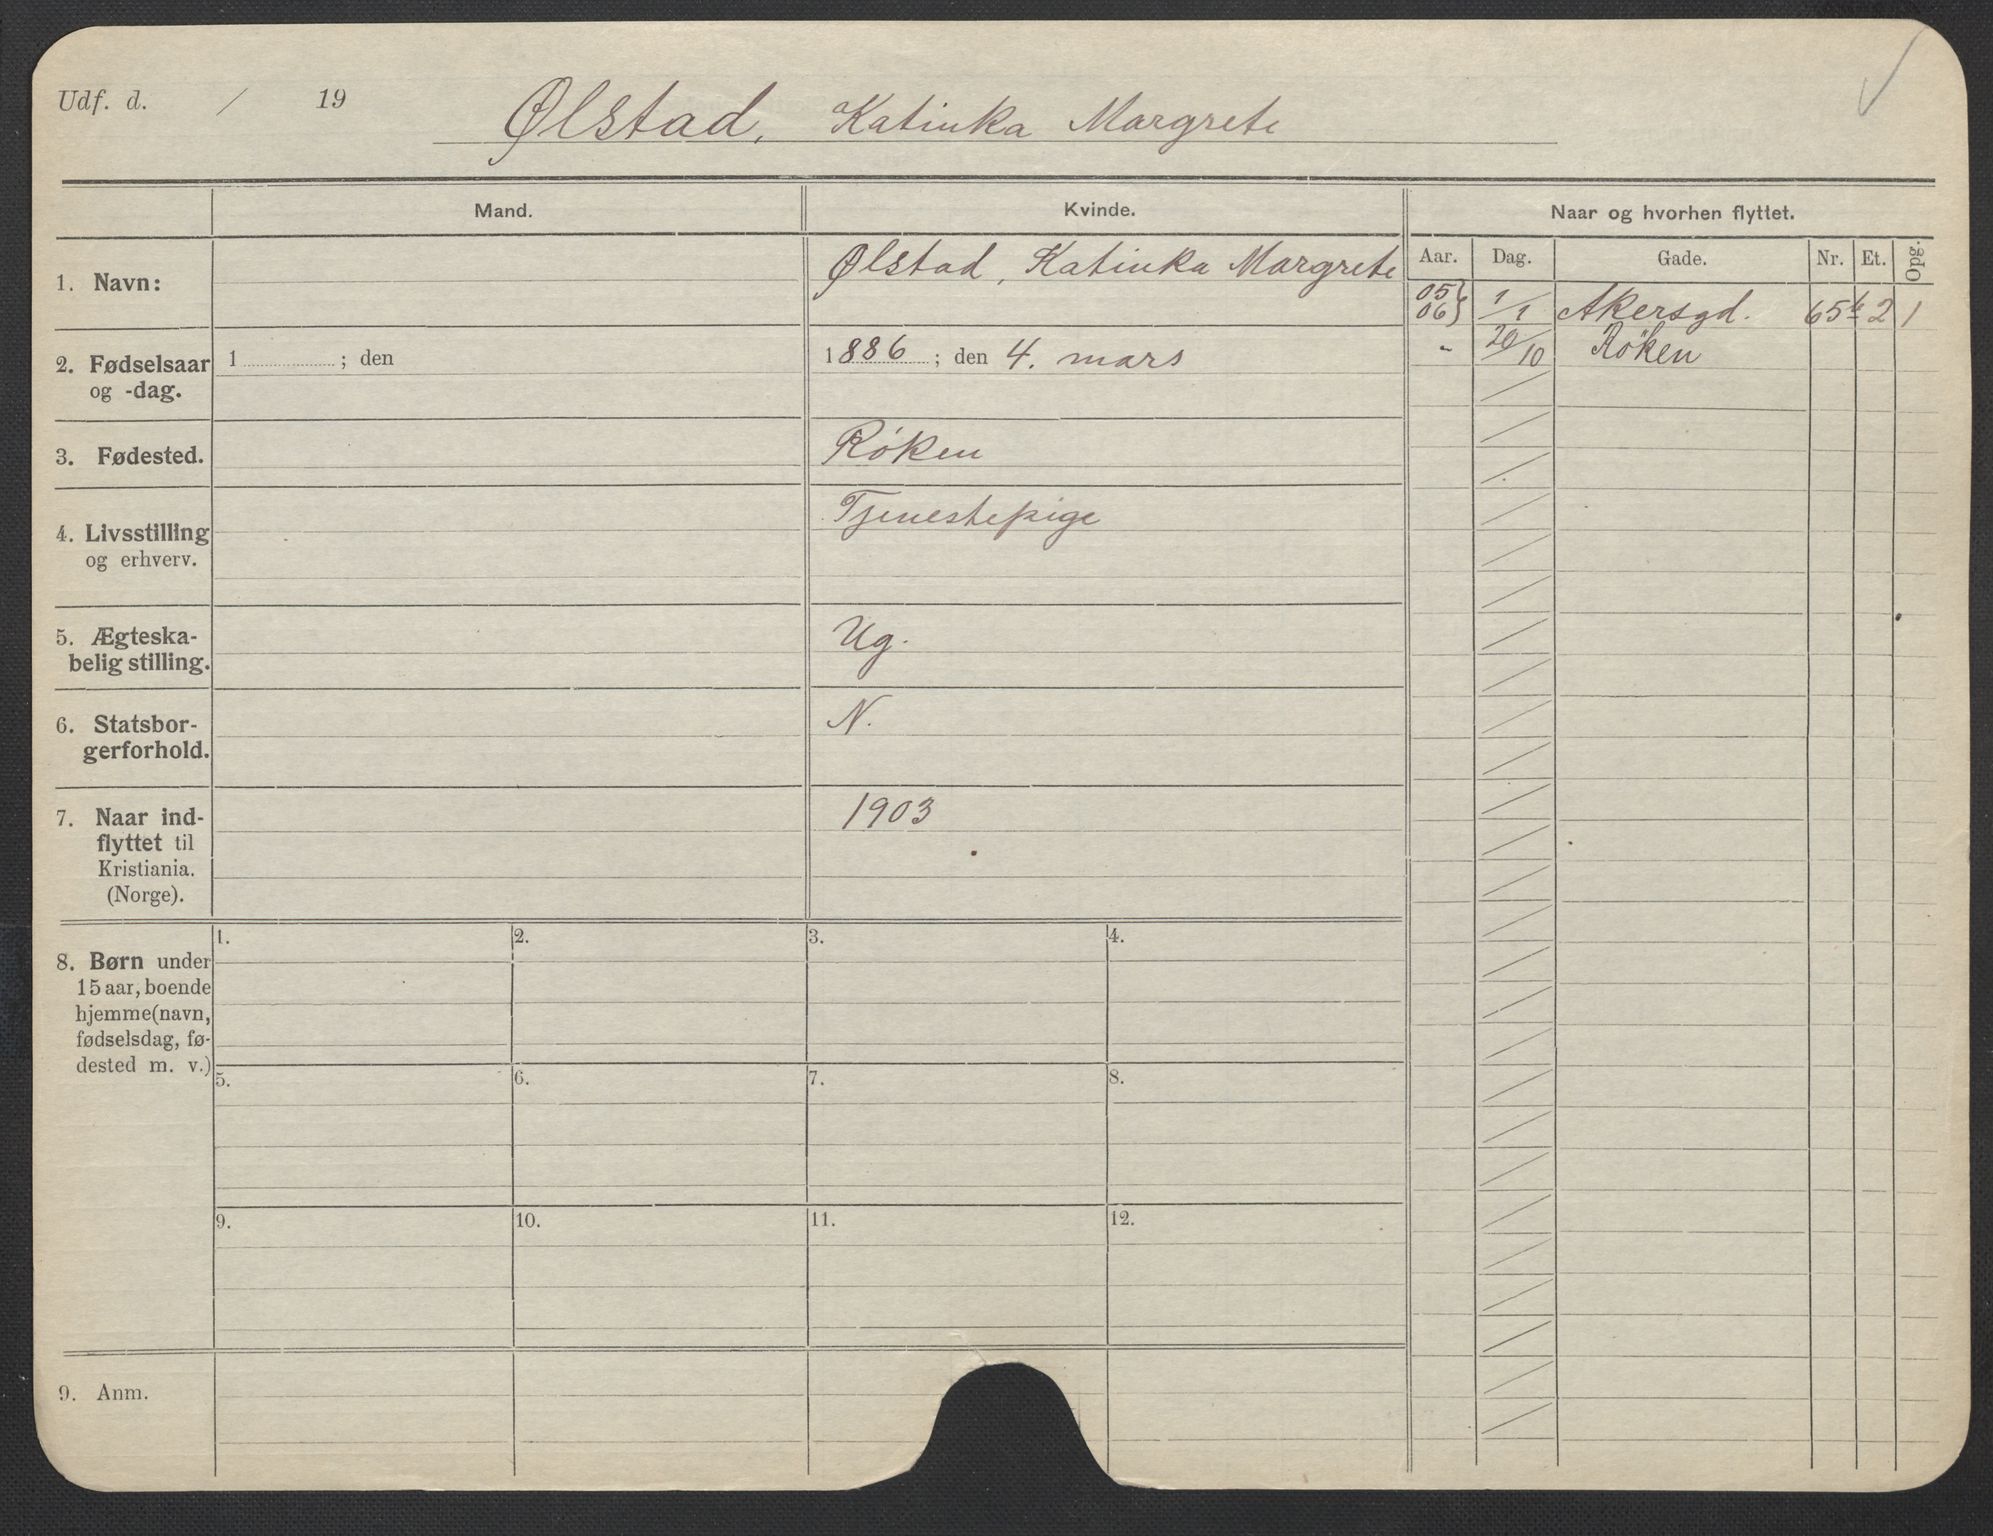 Udf. d. / 19
Ølstad, Katinka Margrete
Mand.
Kvinde.
Naar og hvorhen flyttet.
Aar. Dag. Gade. Nr. Et. Opg.
1. Navn:
Ølstad, Katinka Margrete
05 } 1/1 Akersgd. 65 2 1
06 }
" 20/10 Røken
2. Fødselsaar
og -dag.
1 ; den
1886 ; den 4. mars
3. Fødested.
Røken
4. Livsstilling
og erhverv.
Tjenestepige
5. Ægteska-
belig stilling.
Ug.
6. Statsbor-
gerforhold.
N.
7. Naar ind-
flyttet til
Kristiania.
(Norge).
1903
8. Børn under
15 aar, boende
hjemme (navn,
fødselsdag, fø-
dested m. v.)
1. 2. 3. 4.
5. 6. 7. 8.
9. 10. 11. 12.
9. Anm.